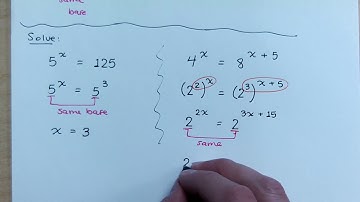 same
base
Solve:
5^x = 125
5^x = 5^3
same base
x = 3
4^x = 8^(x + 5)
(2^2)^x = (2^3)^(x + 5)
2^(2x) = 2^(3x + 15)
same
2